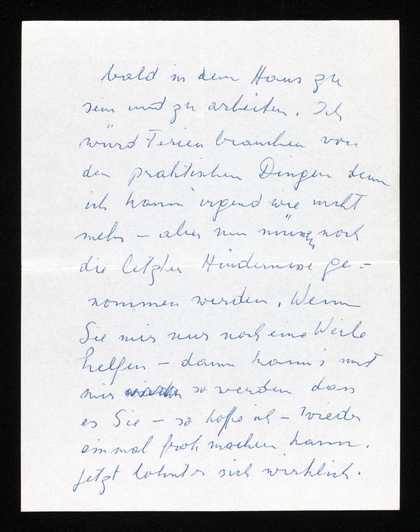 bald in dem Haus zu
sein und zu arbeiten. Ich
würd Ferien brauchen von
den praktischen Dingen denn
ich kann irgendwie nicht
mehr – aber nun müssen noch
die letzten Hindernisse ge-
nommen werden. Wenn
Sie mir nur noch eine Weile
helfen – dann kann's mit
mir so werden dass
es Sie – so hoffe ich – wieder
einmal froh machen kann.
Jetzt lohnt es sich wirklich.